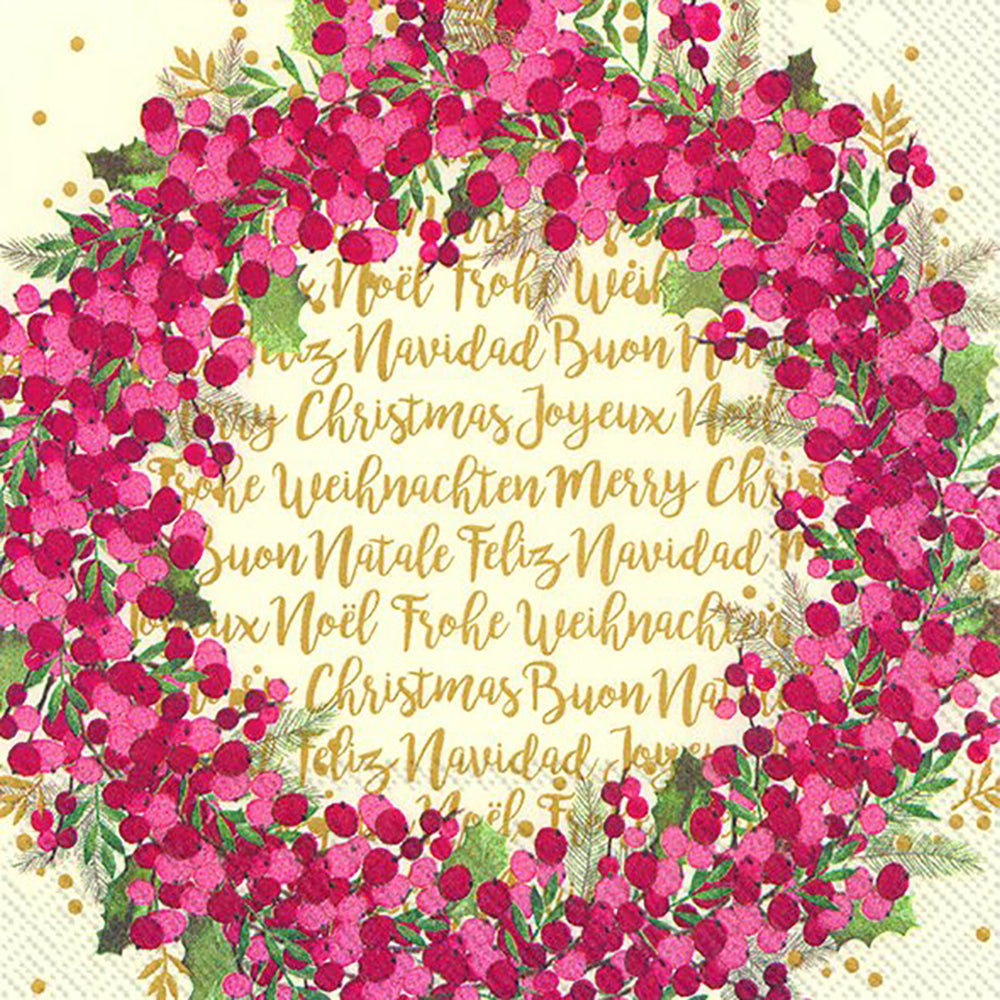 Noël Frohe Weih
Feliz Navidad Buon Nat
Merry Christmas Joyeux Noël
Frohe Weihnachten Merry Chris
Buon Natale Feliz Navidad M
Joyeux Noël Frohe Weihnachten
Christmas Buon Nat
Feliz Navidad Joyeu
Noël Fr